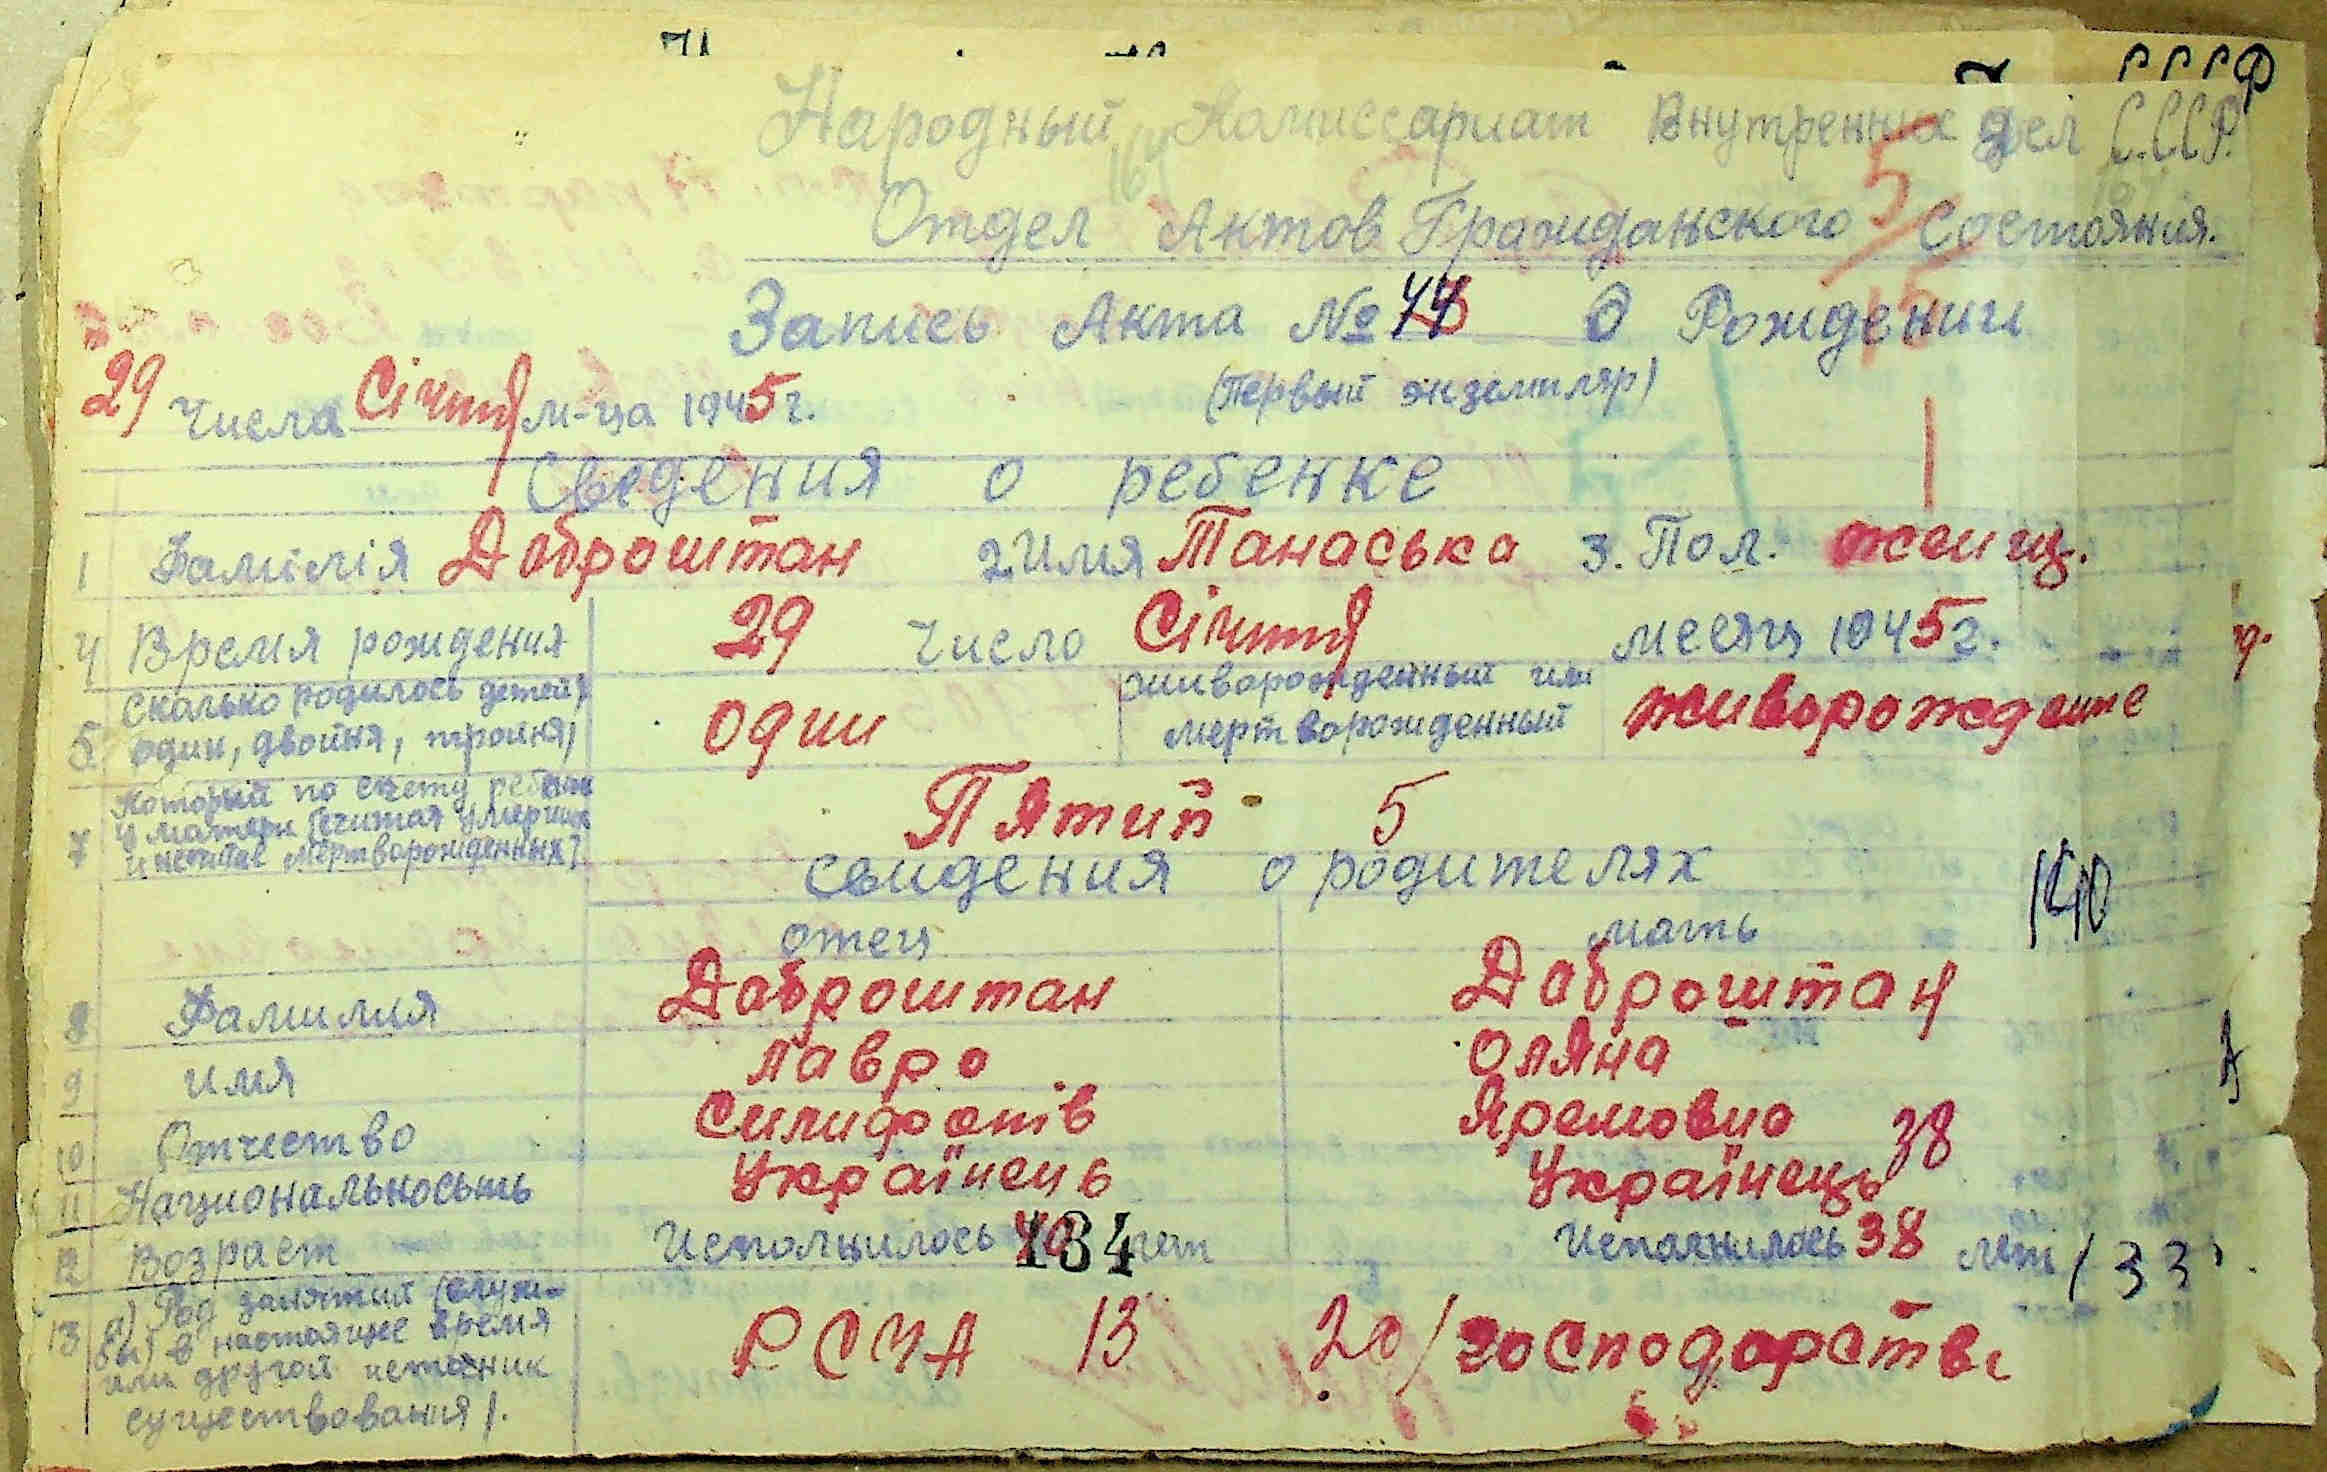 Народный Комиссариат Внутренних дел СССР.
Отдел Актов Гражданского Состояния.
Запись Акта № 44 О Рождении
29 числа Січння м-ца 1945 г. (Первый экземпляр)
Сведения о ребенке
1 Фамілія Доброштан 2. Имя Танаська 3. Пол. женщ.
4 Время рождения 29 число Січння месяц 1945 г.
5 Сколько родилось детей) один, двойня, тройня) один живорожденный или мертворожденный живорождение
7 Который по счету ребенок у матери (считая умерших и не считая мертворожденных) Пятий 5
свидения о родителях
отец мать
8 Фамилия Доброштан Доброштан
9 имя Лавро Оляна
10 Отчество Силифонів Яремовна 38
11 Национальносьть Українець Українець
12 Возраст Исполнилось 134 лет Исполнилось 38 лет /33
13 а) Род занятий (служ-
бы) в настоящее время
или другой источник
существования).
РСЧА 13 20/ господарстві